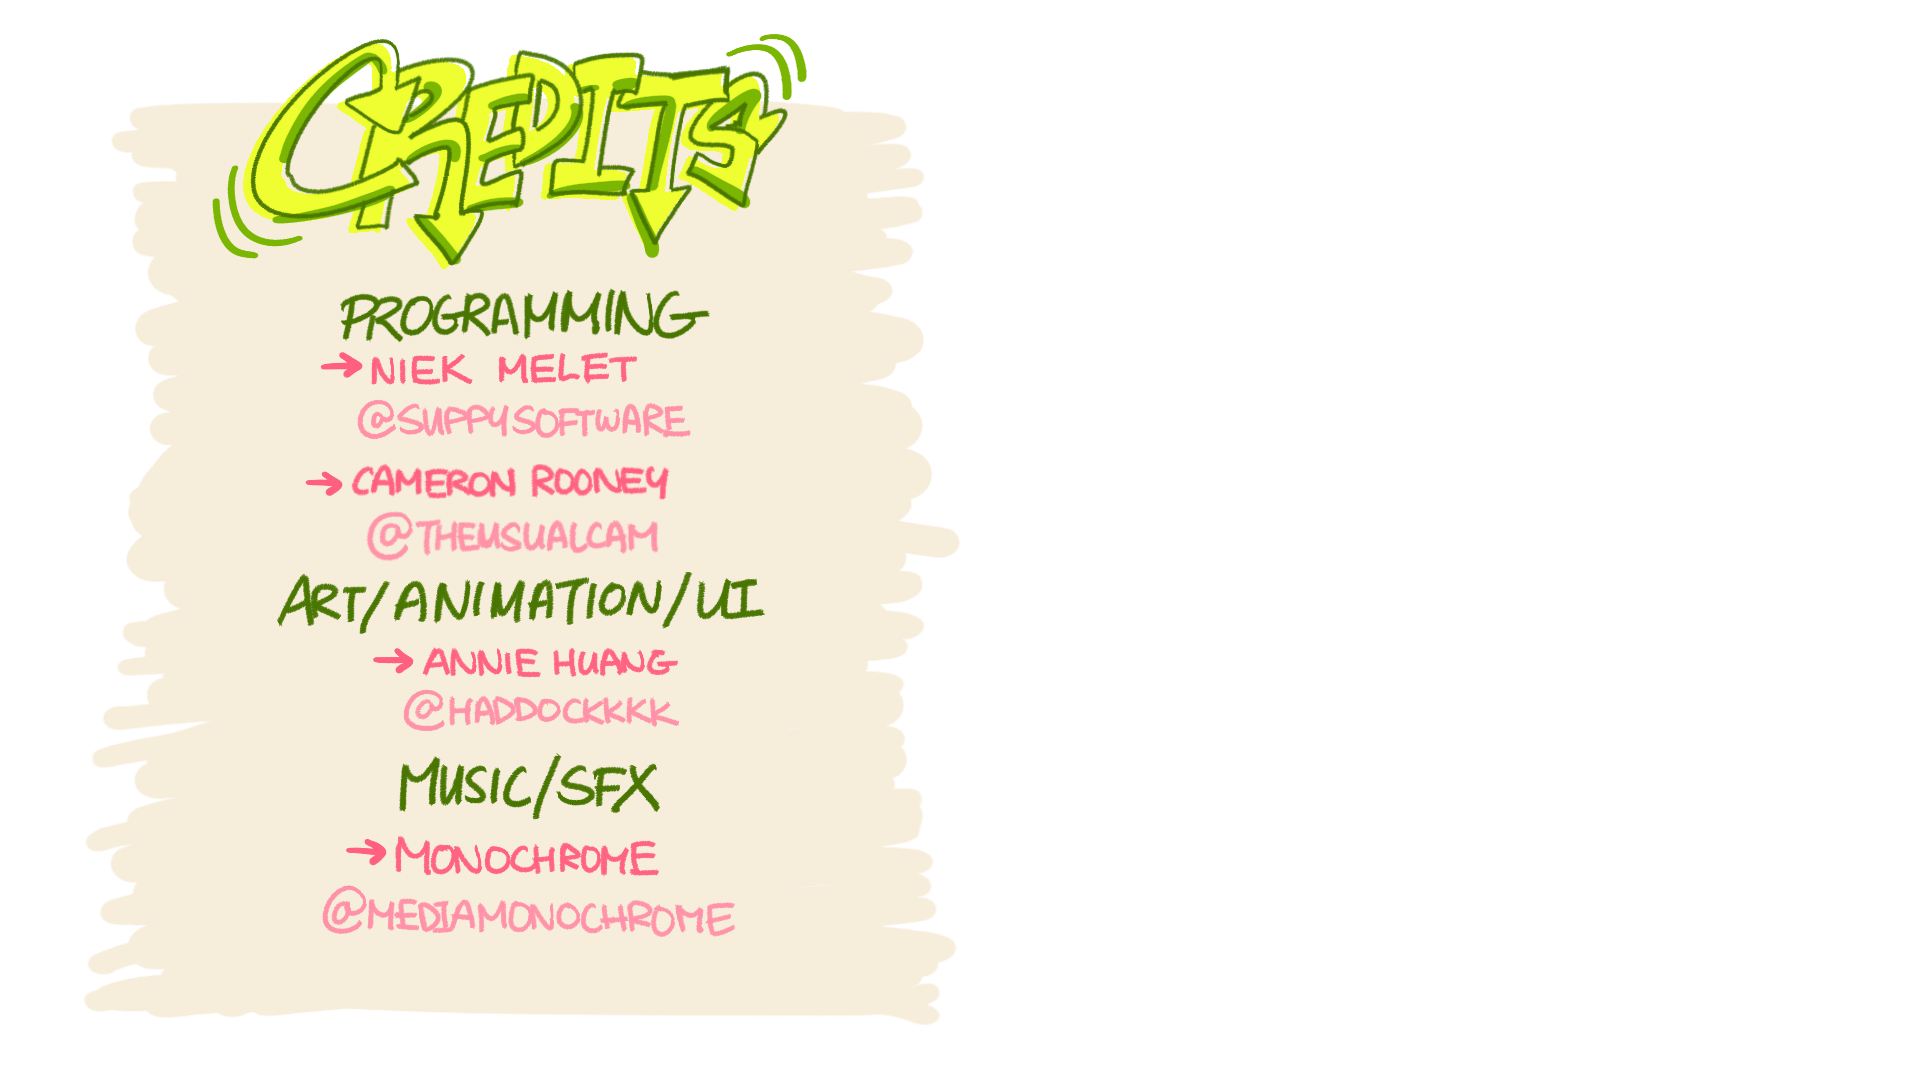 CREDITS
PROGRAMMING
→NIEK MELET
@SUPPYSOFTWARE
→CAMERON ROONEY
@THEUSUALCAM
ART/ANIMATION/UI
→ANNIE HUANG
@HADDOCKKKK
MUSIC/SFX
→MONOCHROME
@MEDIAMONOCHROME